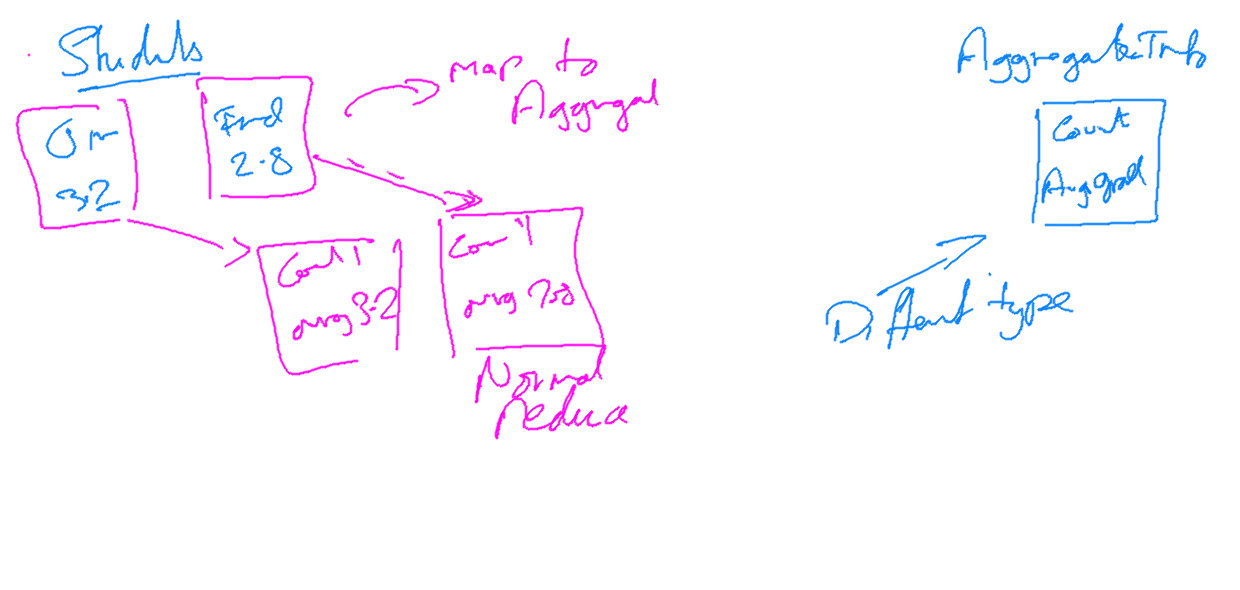 Students
Jim
3.2
Fred
2.8
map to
Aggregat
Count 1
avg 3.2
Coun 1
avg 2.8
Normal
reduce
AggregateInfo
Count
AvgGrad
Different type